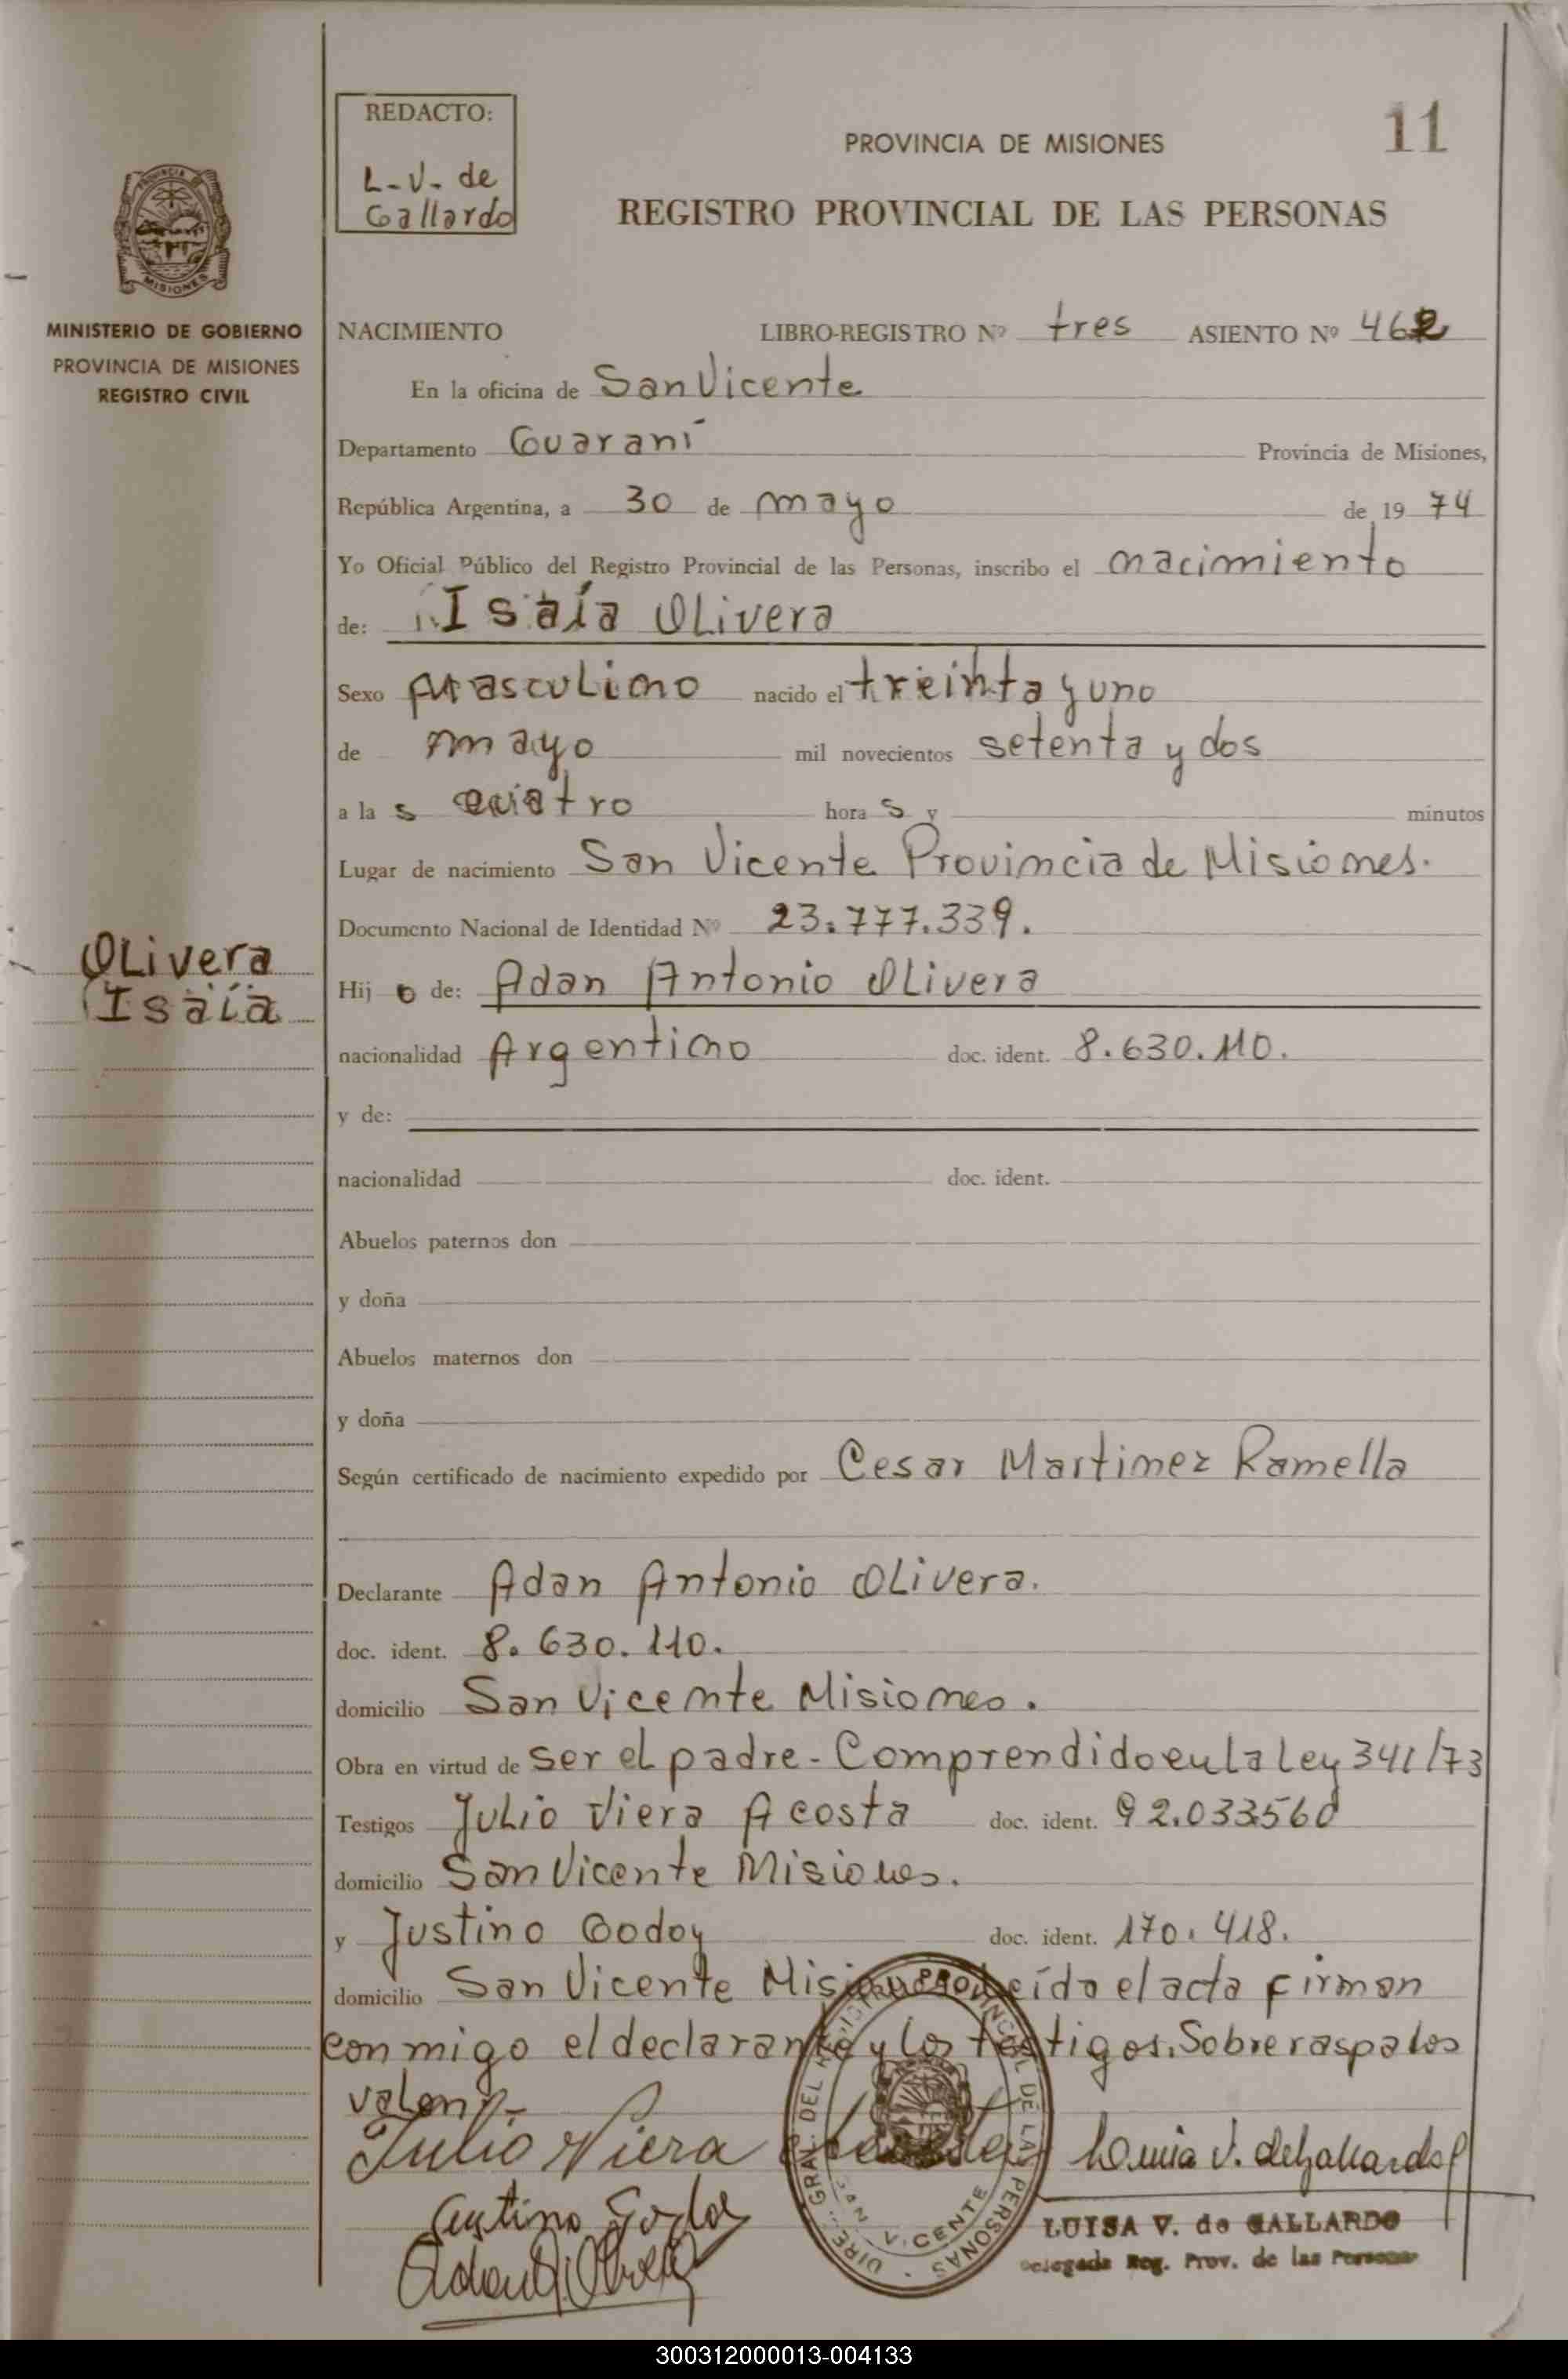 REDACTO:
L-V- de
Gallardo
11
PROVINCIA DE MISIONES
REGISTRO PROVINCIAL DE LAS PERSONAS
PROVINCIA DE
MISIONES
MINISTERIO DE GOBIERNO
PROVINCIA DE MISIONES
REGISTRO CIVIL
NACIMIENTO LIBRO-REGISTRO Nº tres ASIENTO Nº 462
En la oficina de San Vicente
Departamento Guaraní Provincia de Misiones,
República Argentina, a 30 de mayo de 19 74
Yo Oficial Público del Registro Provincial de las Personas, inscribo el nacimiento
de: Isaía Olivera
Sexo Masculino nacido el treinta y uno
de mayo mil novecientos setenta y dos
a la s cuatro hora s y minutos
Lugar de nacimiento San Vicente Provincia de Misiones.
Documento Nacional de Identidad Nº 23.777.339.
Olivera
Isaía
Hij o de: Adan Antonio Olivera
nacionalidad Argentino doc. ident. 8.630.110.
y de:
nacionalidad doc. ident.
Abuelos paternos don
y doña
Abuelos maternos don
y doña
Según certificado de nacimiento expedido por Cesar Martinez Ramella
Declarante Adan Antonio Olivera.
doc. ident. 8.630.110.
domicilio San Vicente Misiones.
Obra en virtud de ser el padre - Comprendido en la Ley 341/73
Testigos Julio Viera Acosta doc. ident. 92.033560
domicilio San Vicente Misiones.
y Justino Godoy doc. ident. 170.418.
domicilio San Vicente Leída el acta firman
conmigo el declarante y los testigos. Sobreraspados
valen.-
Julio Viera
Luisa V. de Gallardo
Justino Godoy
DIRE. GRAL. DEL REGISTRO PROVINCIAL DE LAS PERSONAS
SAN VICENTE
LUISA V. de GALLARDO
Delegada Reg. Prov. de las Personas
300312000013-004133